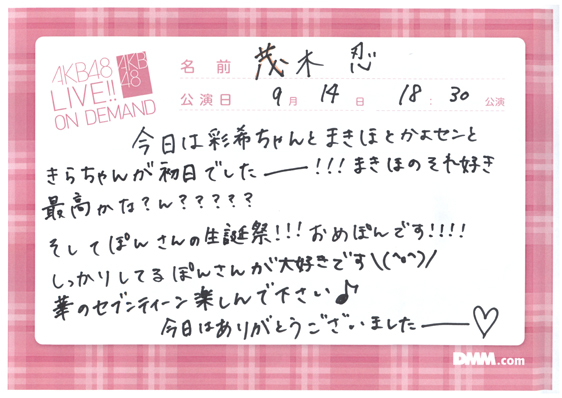 AKB48
LIVE!!
ON DEMAND
AKB
48
名前 茂木忍
公演日 9月 14日 18:30 公演
今日は彩希ちゃんとまきほとかよセンと
きらちゃんが初日でしたー!!!まきほのそれ好き
最高かな?ん?????
そしてぽんさんの生誕祭!!!おめぽんです!!!!
しっかりしてるぽんさんが大好きです\(^o^)/
華のセブンティーン楽しんで下さい♪
今日はありがとうございましたー♡
DMM.com